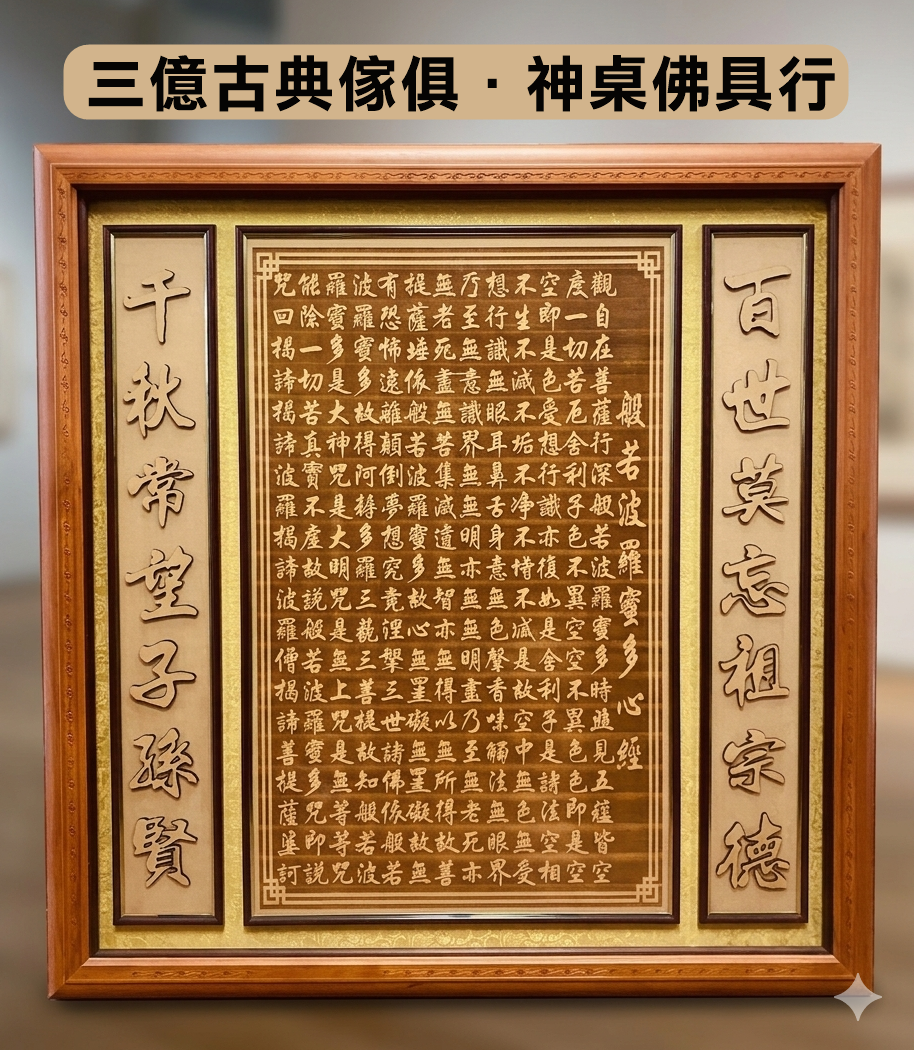 三億古典傢俱・神桌佛具行
百世莫忘祖宗德
般若波羅蜜多心經
觀自在菩薩行深般若波羅蜜多時照見五蘊皆空
度一切苦厄舍利子色不異空空不異色色即是空
空即是色受想行識亦復如是舍利子是諸法空相
不生不滅不垢不淨不增不減是故空中無色無受
想行識無眼耳鼻舌身意無色聲香味觸法無眼界
乃至無意識界無無明亦無無明盡乃至無老死亦
無老死盡無苦集滅道無智亦無得以無所得故菩
提薩埵依般若波羅蜜多故心無罣礙無罣礙故無
有恐怖遠離顛倒夢想究竟涅槃三世諸佛依般若
波羅蜜多故得阿耨多羅三藐三菩提故知般若波
羅蜜多是大神咒是大明咒是無上咒是無等等咒
能除一切苦真實不虛故說般若波羅蜜多咒即說
咒曰揭諦揭諦波羅揭諦波羅僧揭諦菩提薩婆訶
千秋常望子孫賢